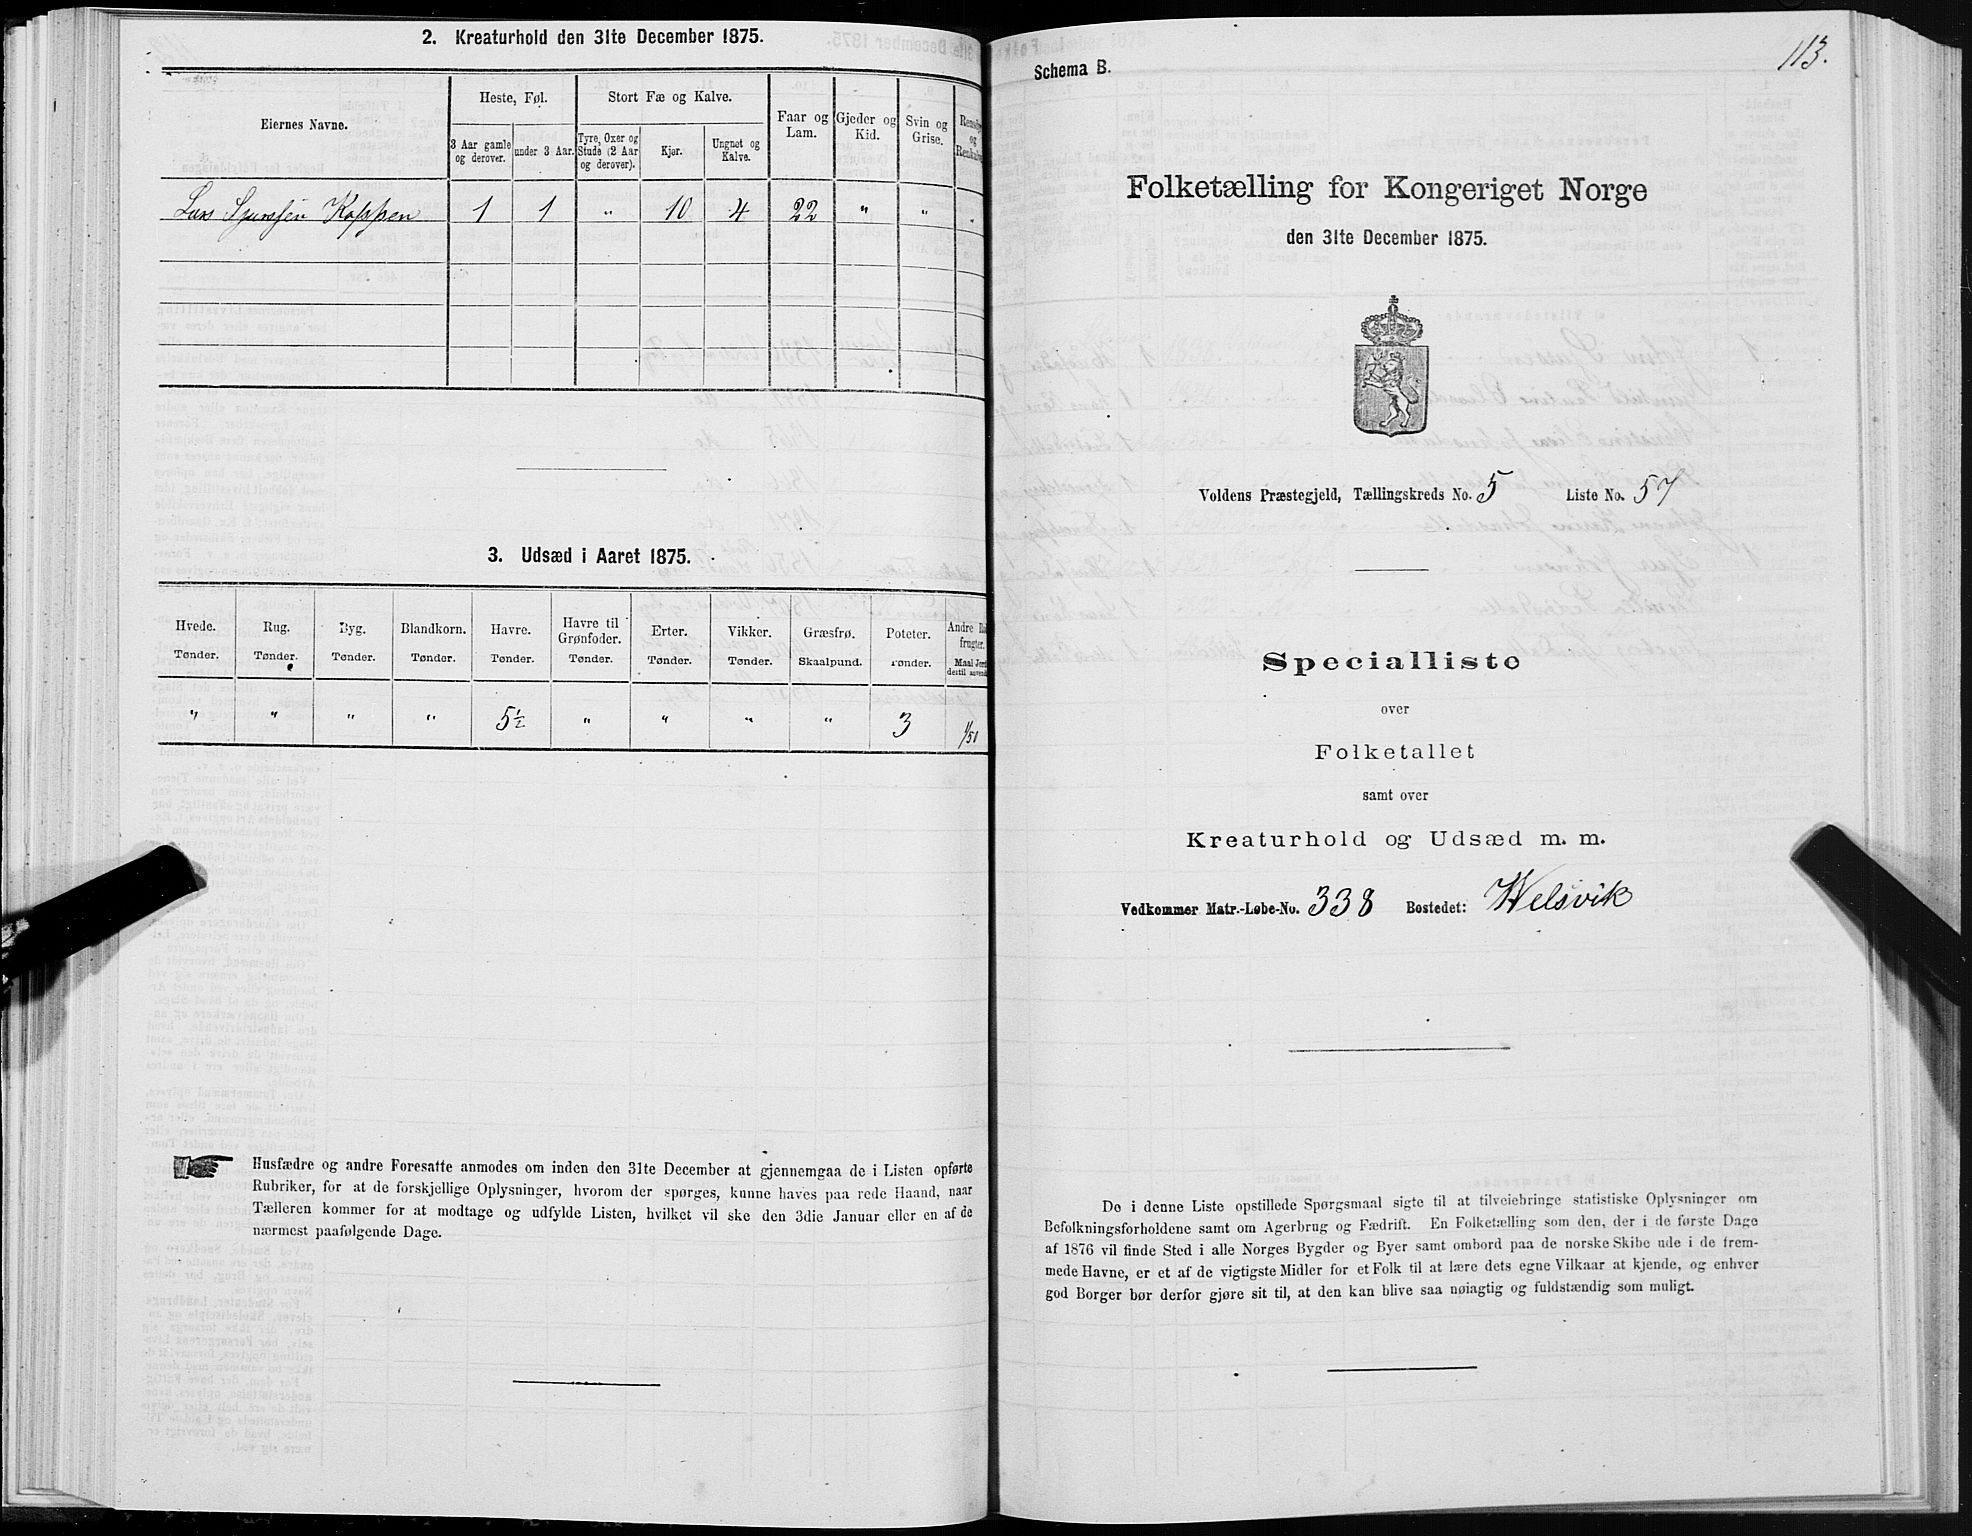 2. Kreaturhold den 31te December 1875.
Eiernes Navne.
Heste, Føl.
3 Aar gamle og derover.
under 3 Aar.
Stort Fæ og Kalve.
Tyre, Oxer og Stude (2 Aar og derover).
Kjør.
Ungnøt og Kalve.
Faar og Lam.
Gjeder og Kid.
Svin og Grise.
Rensdyr og Renkalve
Lars Koppen 1 1 " 10 4 22 " " "
3. Udsæd i Aaret 1875.
Hvede. Rug. Byg. Blandkorn. Havre. Havre til Grønfoder. Erter. Vikker. Græsfrø. Poteter. Andre Rodfrugter.
Tønder. Tønder. Tønder. Tønder. Tønder. Tønder. Tønder. Tønder. Skaalpund. Tønder. Maal Jord dertil anvendt
" " " " 5½ " " " " 3 1/50
Husfædre og andre Foresatte anmodes om inden den 31te December at gjennemgaa de i Listen opførte
Rubriker, for at de forskjellige Oplysninger, hvorom der spørges, kunne haves paa rede Haand, naar
Tælleren kommer for at modtage og udfylde Listen, hvilket vil ske den 3die Januar eller en af de
nærmest paafølgende Dage.
113.
Schema B.
Folketælling for Kongeriget Norge
den 31te December 1875.
Voldens Præstegjeld, Tællingskreds No. 5 Liste No. 57
Specialliste
over
Folketallet
samt over
Kreaturhold og Udsæd m. m.
Vedkommer Matr.-Løbe-No. 338 Bostedet: Welsvik
De i denne Liste opstillede Spørgsmaal sigte til at tilveiebringe statistiske Oplysninger om
Befolkningsforholdene samt om Agerbrug og Fædrift. En Folketælling som den, der i de første Dage
af 1876 vil finde Sted i alle Norges Bygder og Byer samt ombord paa de norske Skibe ude i de frem-
mede Havne, er et af de vigtigste Midler for et Folk til at lære dets egne Vilkaar at kjende, og enhver
god Borger bør derfor gjøre sit til, at den kan blive saa nøiagtig og fuldstændig som muligt.